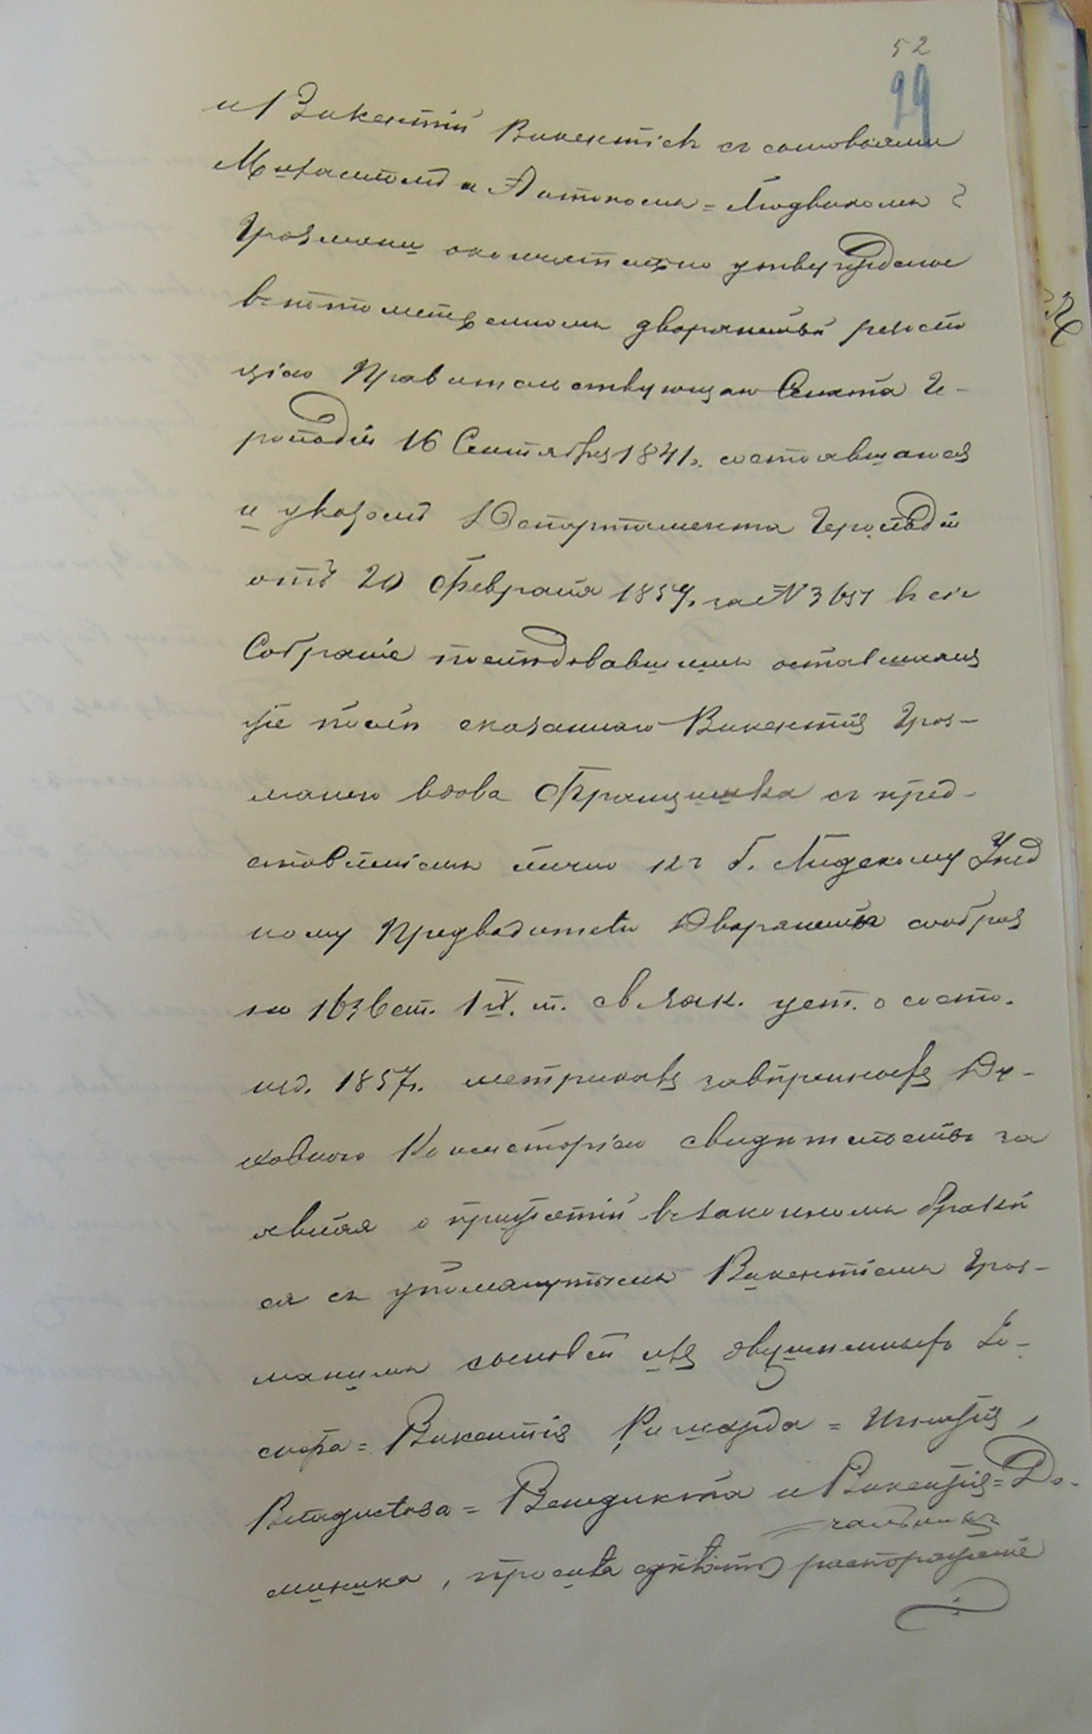 52
29
и Викентій Викентьевъ съ сыновьями
Михаиломъ и Антономъ=Людвикомъ
Гразмани окончательно утвержденые
въ потомственномъ дворянствѣ резолю
ціею Правительствующаго Сената Ге-
рольдіи 16 Сентября 1841г. состоявшеюся
и указомъ Департамента Герольдіи
отъ 20 Февраля 1857г. за № въ сіе
Собраніе послѣдовавшимъ оставшаяся
же послѣ сказаннаго Викентія Гроз-
мани вдова Францишка съ пред-
ставленіемъ лично къ б. Лидскому Уѣзд
ному Предводителю Дворянства сообраз
но 1636 ст. IX. т. св. зак. уст. о состо.
изд. 1857г. метрикахъ завѣренныхъ Ду-
ховною Консисторіею свидѣтельствъ за
явила о прижитіи въ законномъ бракѣ
ея съ упомянутымъ Викентіемъ Гроз-
манимъ сыновей ихъ двуименныхъ Ка-
спра=Викентія Ришарда=Игнатія,
Владислава=Бенедикта и Викентія=До-
миника, прося сдѣлать распоряженіе